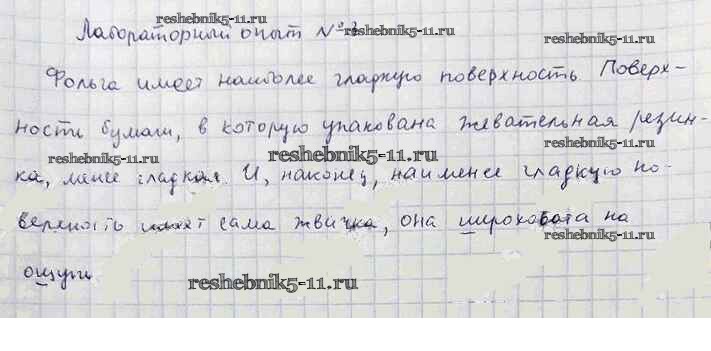 reshebnik5-11.ru
Лабораторный опыт №
reshebnik5-11.ru
reshebnik5-11.ru
Фольга имеет наиболее гладкую поверхность Поверх-
ности бумаги, в которую упакована жевательная резин-
reshebnik5-11.ru
reshebnik5-11.ru
reshebnik5-11.ru
ка, менее гладкая. И, наконец, наименее гладкую по-
верхность имеет сама жвичка, она широховата на
reshebnik5-11.ru
ощупь
reshebnik5-11.ru